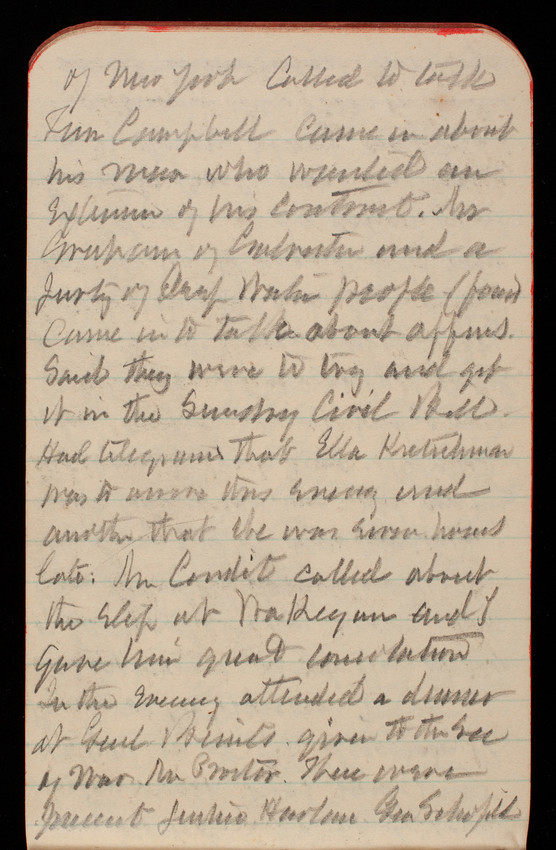 of New York Called to talk
Campbell came in about
his man who wanted an
Extension of his Contract. Mr
Graham of and a
party of Deep Water people (four)
came in to talk about affairs.
Said they were to try and get
it in the Sundry Civil Bill.
Had telegrams that Ella Kretschman
was to arrive this evening and
another that she was seven hours
late. Mr Condit called about
the slip at Waukegan and I
gave him great consolation
In the evening attended a dinner
at Genl given to the Sec
of War Mr Proctor. There were
present Justice Harlan Gen Schofield